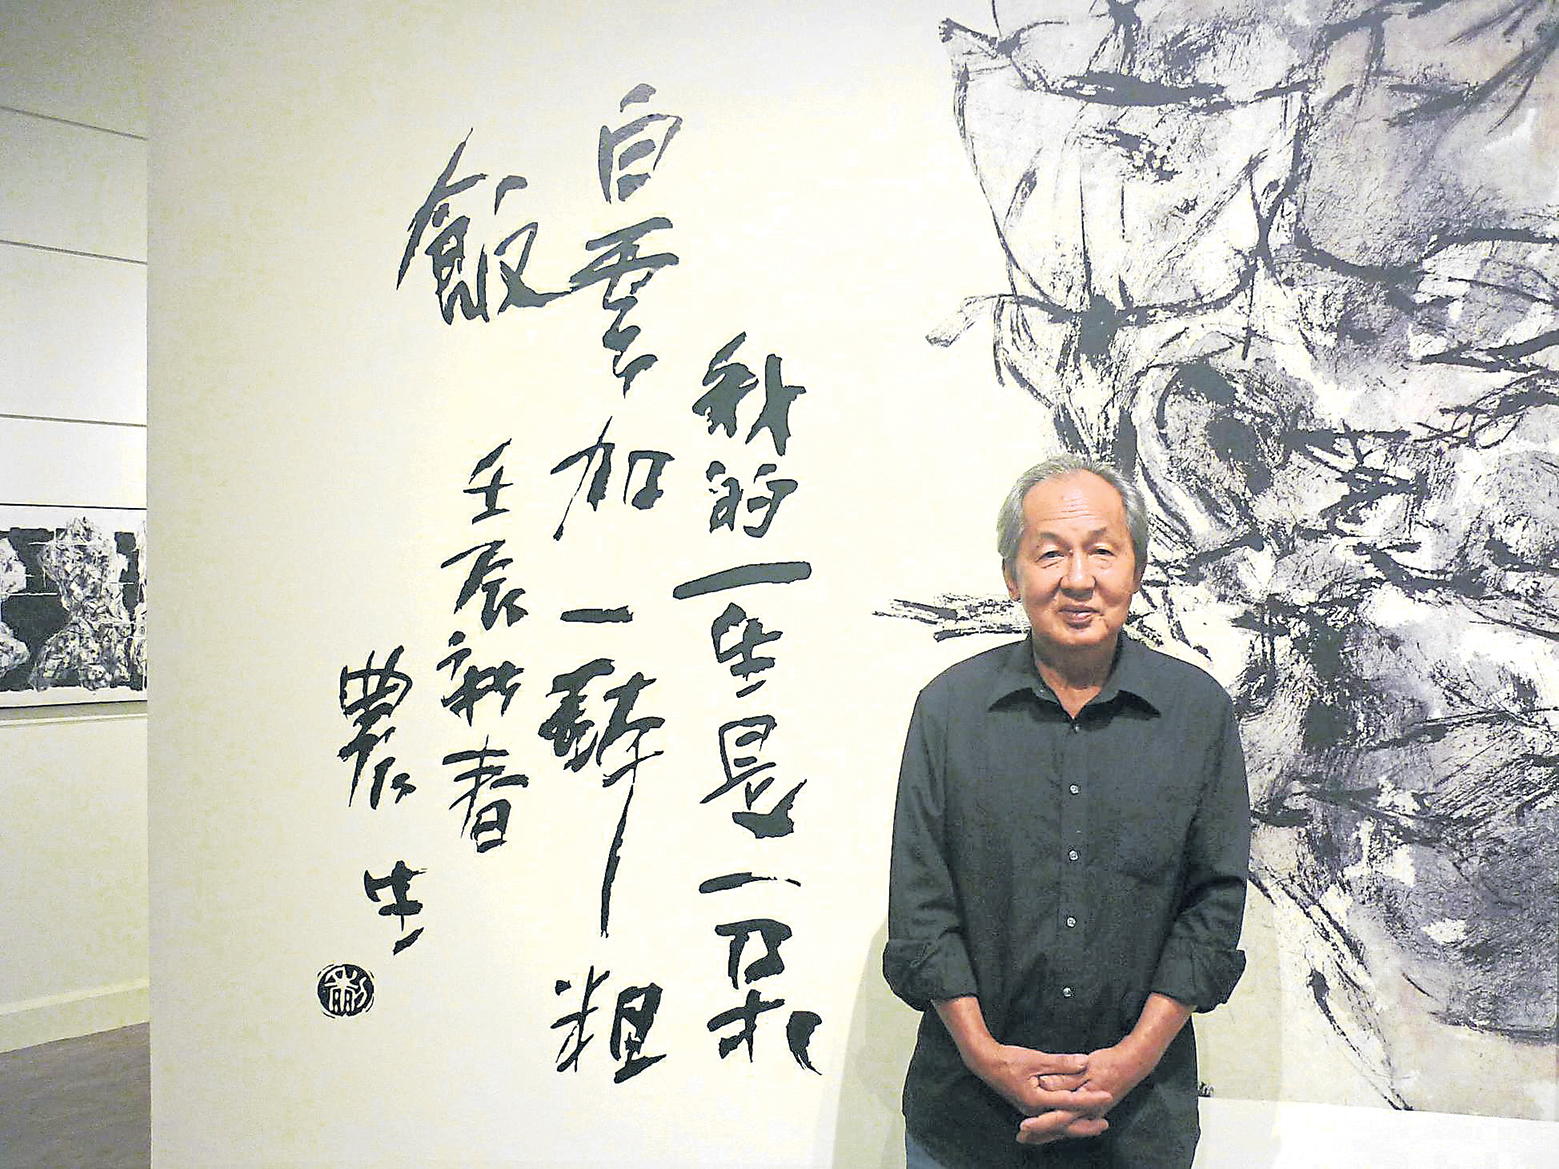 我的一生是一朵
白雲加一粗
飯
壬辰新春
農生